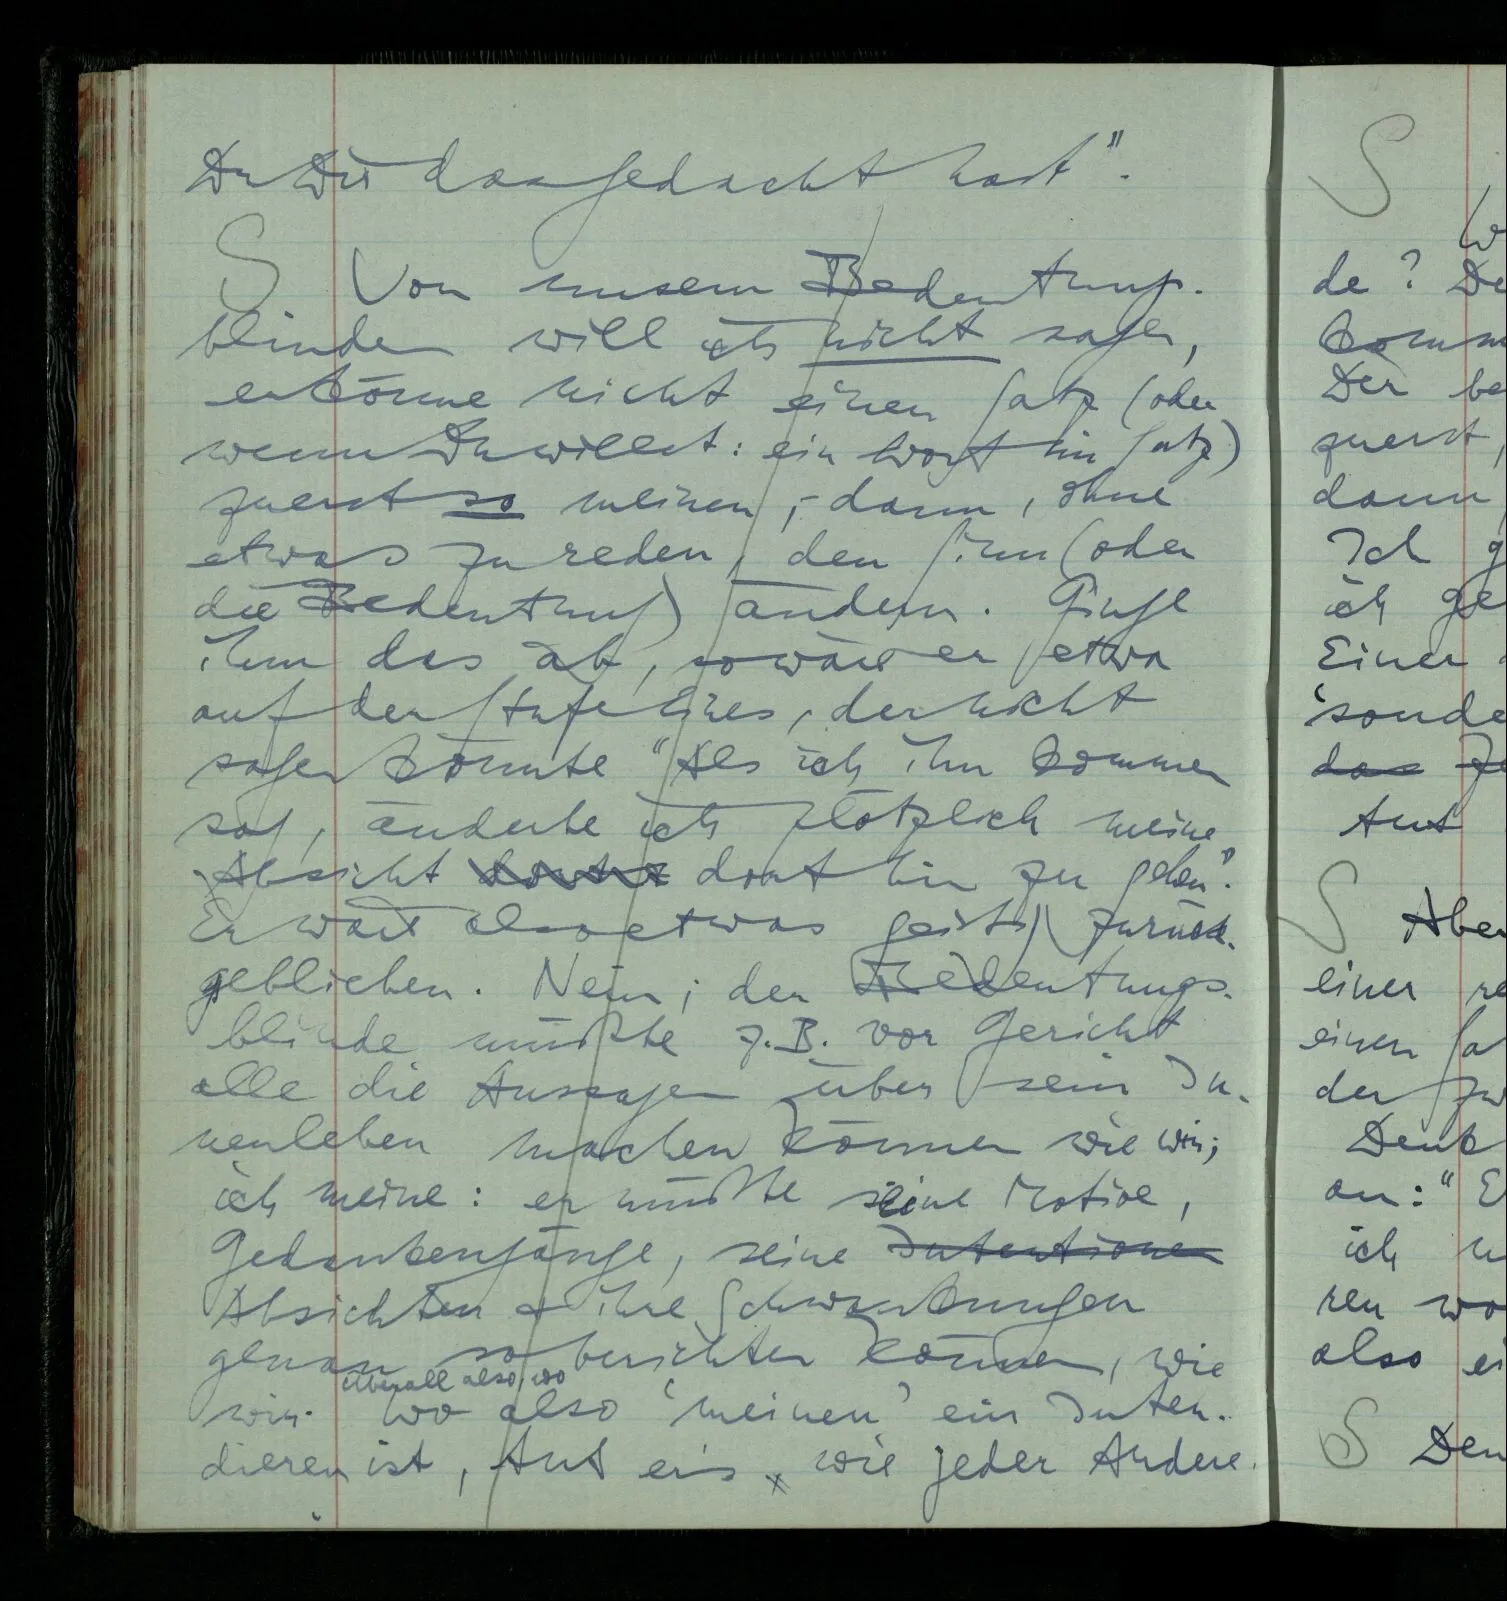 Du Dir das gedacht hast".
S Von unsern Bedeutungs-
blinden will ich nicht sagen,
er könne nicht einen Satz (oder
wenn Du willst: ein Wort im Satz)
zuerst so meinen, – dann, ohne
etwas zu reden, den Sinn (oder
die Bedeutung) ändern. Ginge
ihm das ab, so wäre er etwa
auf der Stufe Eines, der nicht
sagen könnte "Als ich ihn kommen
sah, änderte ich plötzlich meine
Absicht dorthin zu gehen".
Er wäre also etwas geistig zurück-
geblieben. Nein; der Bedeutungs-
blinde müßte z.B. vor Gericht
alle die Aussagen über sein In-
nenleben machen können wie wir;
ich meine: er müßte seine Motive,
Gedankengänge, seine Intentionen
Absichten & ihre Schwankungen
genau so berichten können, wie
überall also, wo
wir. Wo also 'meinen' ein Inten-
dieren ist, tut er's wie jeder Andere.
S
W
de? De
komm
Der be
zuerst,
dann
Ich g
ich ge
Einer
sonde
das
tut
S Aber
einer re
einen Sa
der zw
Denk
an: "E
ich
ren wo
also ei
S Den